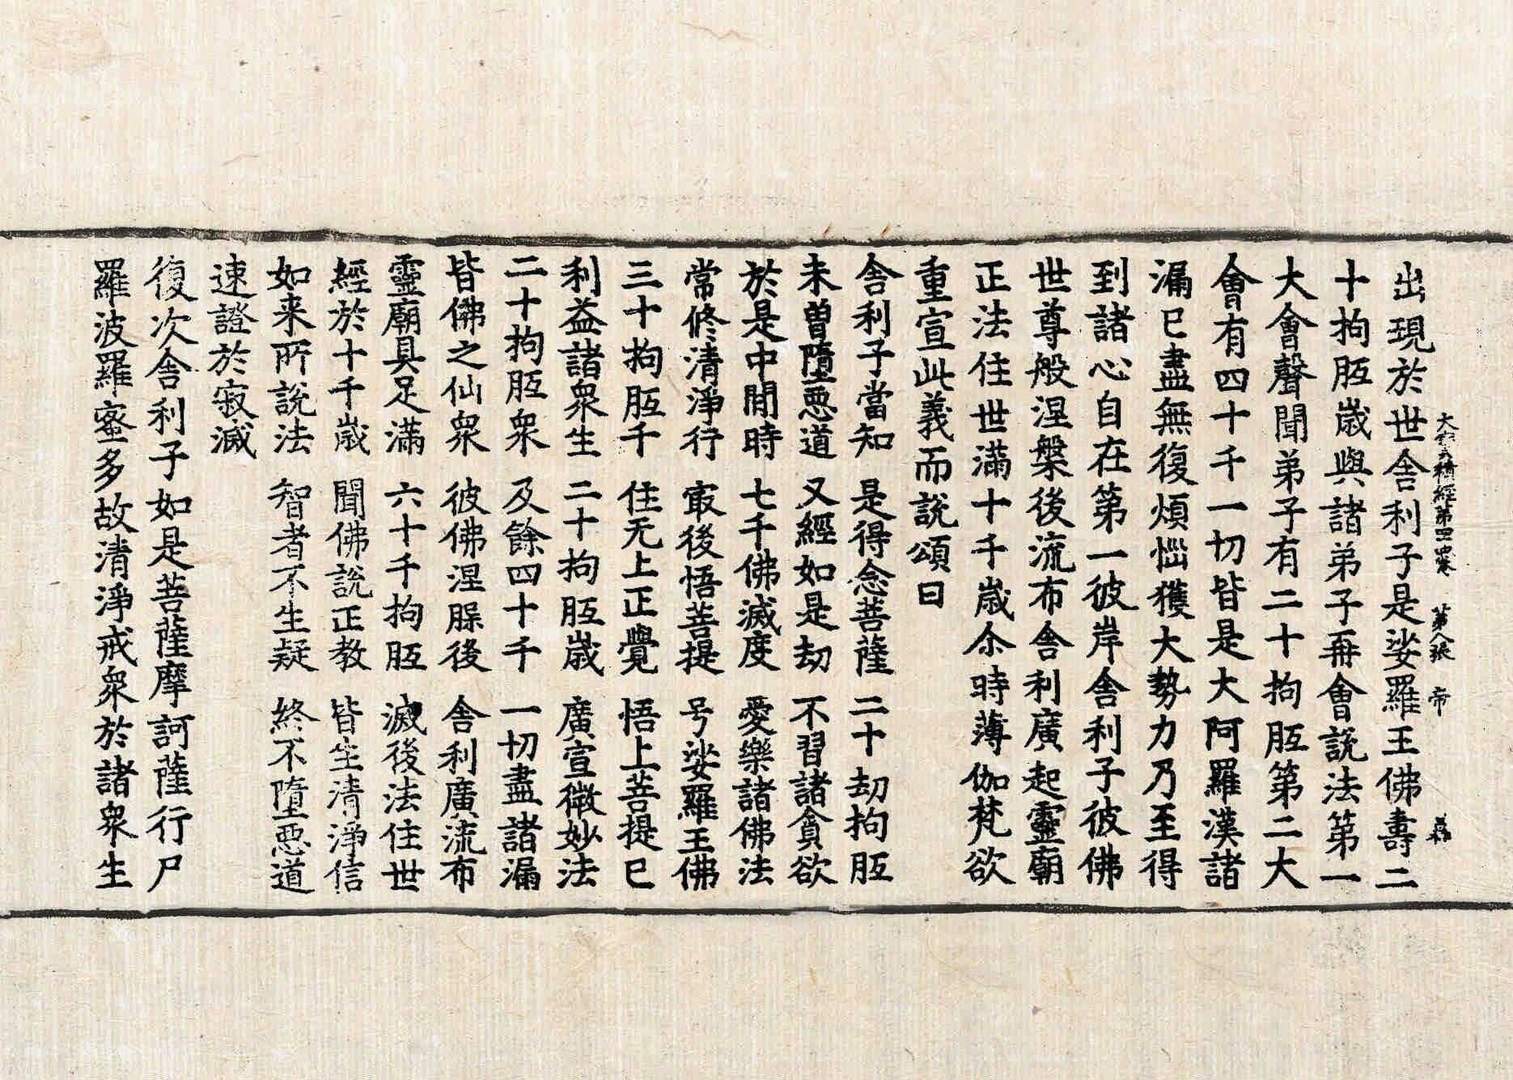 大寶積經第四十四卷 第八張 帝
出現於世舍利子是娑羅王佛壽二
十拘胝歲與諸弟子再會說法第一
大會聲聞弟子有二十拘胝第二大
會有四十千一切皆是大阿羅漢諸
漏已盡無復煩惱獲大勢力乃至得
到諸心自在第一彼岸舍利子彼佛
世尊般涅槃後流布舍利廣起靈廟
正法住世滿十千歲尒時薄伽梵欲
重宣此義而說頌曰
舍利子當知 是得念菩薩 二十劫拘胝
未曾墮惡道 又經如是劫 不習諸貪欲
於是中間時 七千佛滅度 愛樂諸佛法
常修清淨行 㝡後悟菩提 号娑羅王佛
三十拘胝千 住无上正覺 悟上菩提已
利益諸衆生 二十拘胝歲 廣宣微妙法
二十拘胝衆 及餘四十千 一切盡諸漏
皆佛之仙衆 彼佛涅槃後 舍利廣流布
靈廟具足滿 六十千拘胝 滅後法住世
經於十千歲 聞佛說正教 皆生清淨信
如来所說法 智者不生疑 終不墮惡道
速證於寂滅
復次舍利子如是菩薩摩訶薩行尸
羅波羅蜜多故清淨戒衆於諸衆生